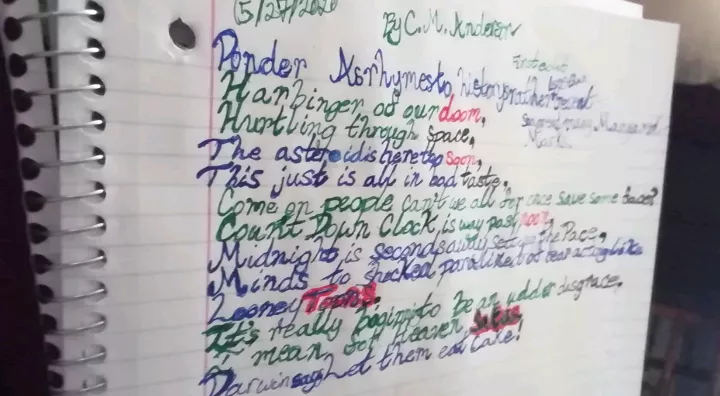 (5/27/2020
By C. M. Anderson
Ponder As rhymes to history rather recent
Harbinger of our doom,
Hurtling through space,
The asteroid is here too soon,
This just is all in bad taste.
Come on people can't we all for once save some face?
Count Down Clock is way past noon,
Midnight is seconds away setting the Pace,
Minds to shocked paralized at fear acting like
Looney Toons.
It's really begining to be an udder disgrace,
I mean for Heaven Sakes
Darwin says Let them eat Cake!